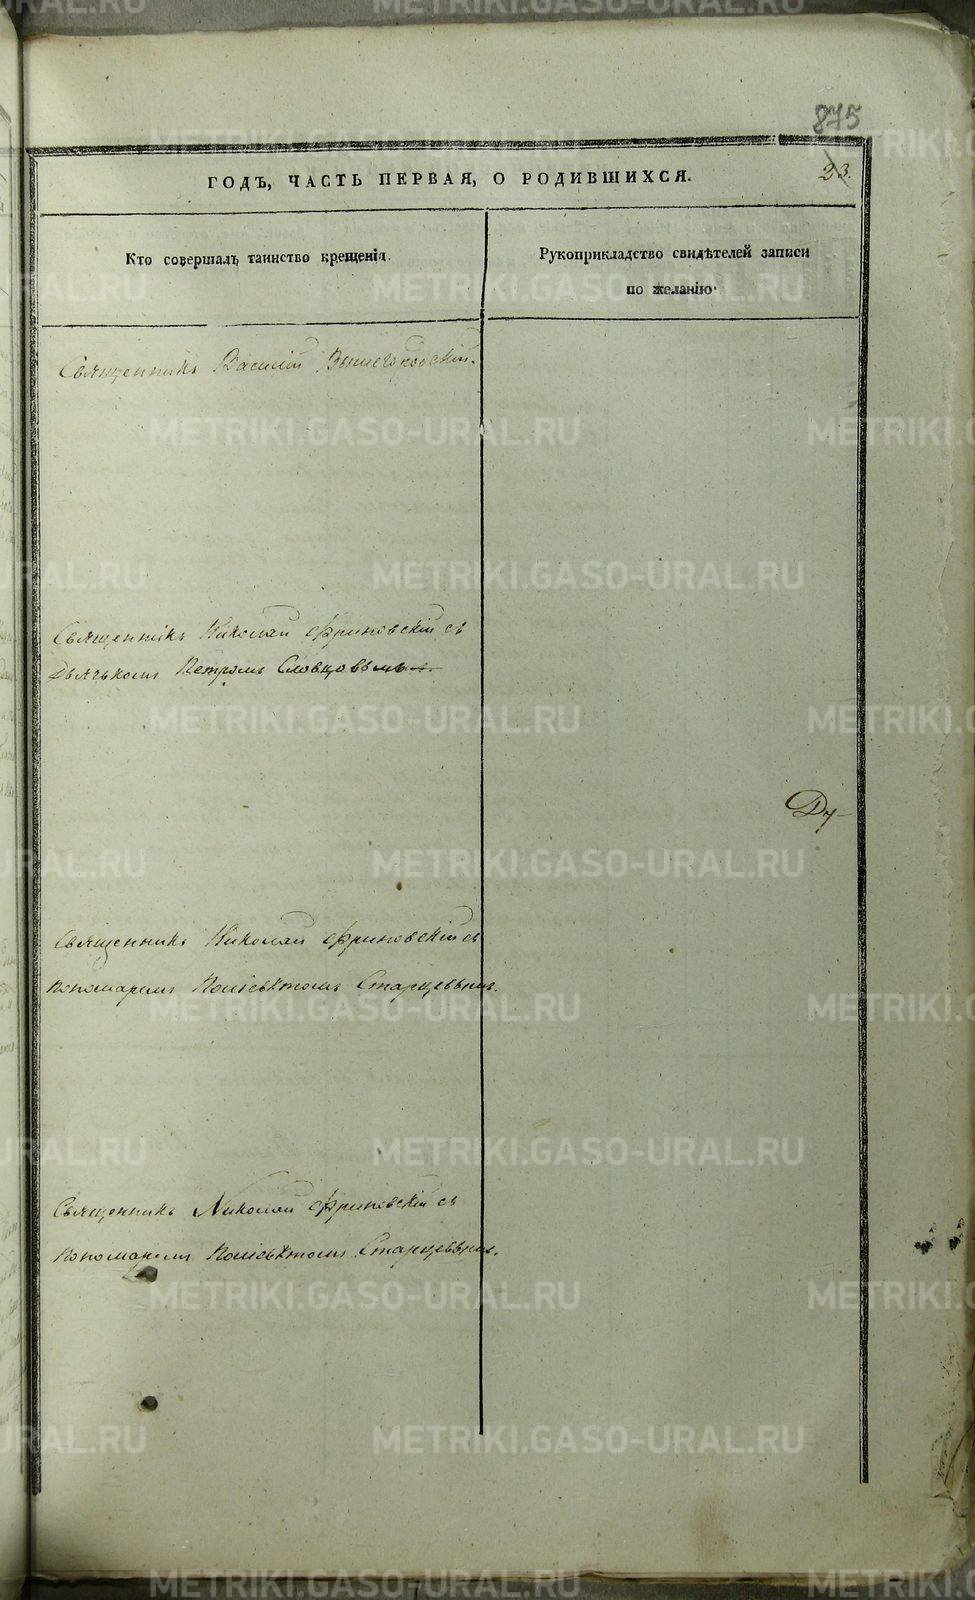 875
23.
ГОДЪ, ЧАСТЬ ПЕРВАЯ, О РОДИВШИХСЯ.
Кто совершалъ таинство крещенія.
Рукоприкладство свидѣтелей записи
по желанію.
Священникъ Василій Вышегородскій.
Священникъ Николай Фриновскій съ
Дьячькомъ Петромъ Словцовымъ.
Священникъ Николай Фриновскій съ
пономаремъ Поліевктомъ Старцевымъ.
Священникъ Николай Фриновскій съ
пономаремъ Поліевктомъ Старцевымъ.
METRIKI.GASO-URAL.RU